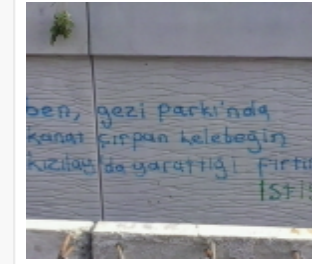 ben, gezi parkı'nda
kanat çırpan kelebeğin
kızılay'da yarattığı